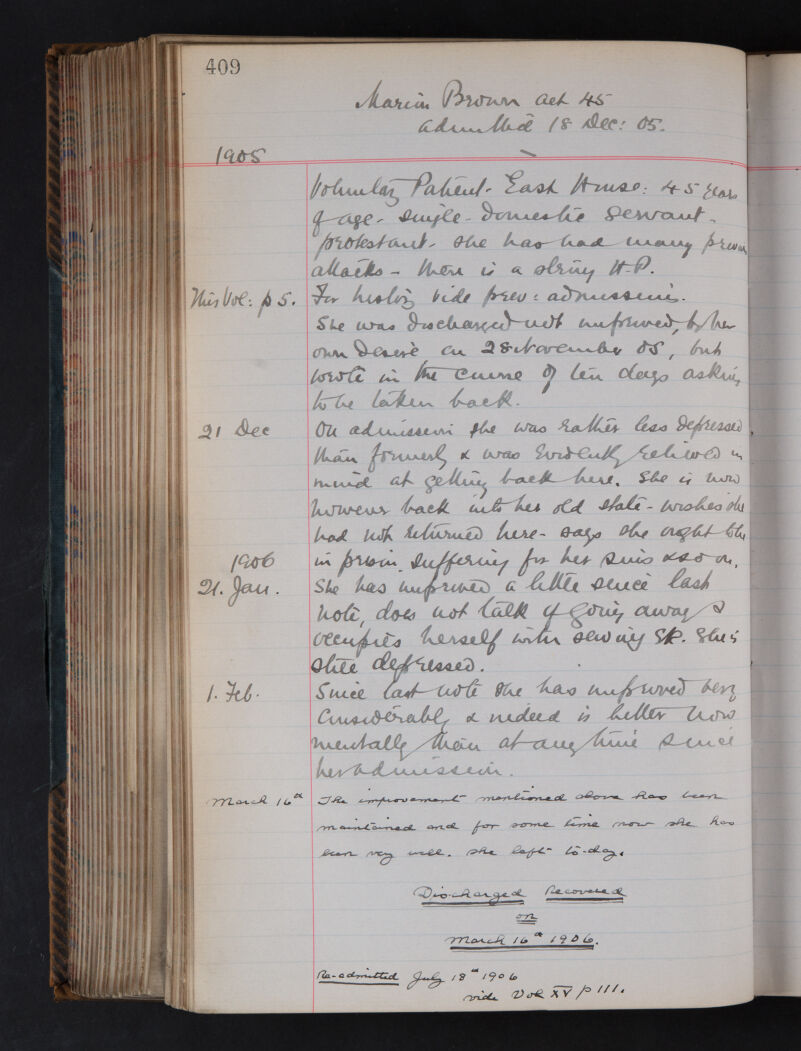 409
Marion Brown aet 45
admitted 18 Dec: 05.
1905
Voluntary Patient - East House: 45 years
of age - single - domestic servant -
protestant - she has had many previous
attacks - there is a strong H.P.
This Vol: p 5. For history vide prev: admission.
She was discharged not improved, by her
own desire on 28 November 05, but
wrote in the course of ten days asking
to be taken back.
21 Dec On admission she was rather less depressed
than formerly & was evidently relieved in
mind at getting back here. She is now
however back into her old state - wishes she
had not returned here - says she ought to be
1906 in prison suffering for her sins & so on.
21. Jan. She has improved a little since last
note, does not talk of going away &
occupies herself with sewing &c. She is
still depressed.
1. Feb. Since last note she has improved very
considerably & indeed is better now
mentally than at any time since
her admission.
March 16th The improvement mentioned above has been
maintained and for some time now she has
been very well. She left to-day.
Discharged Recovered
on
March 16th 1906.
Re-admitted July 18th 1906
vide Vol XV p 111.